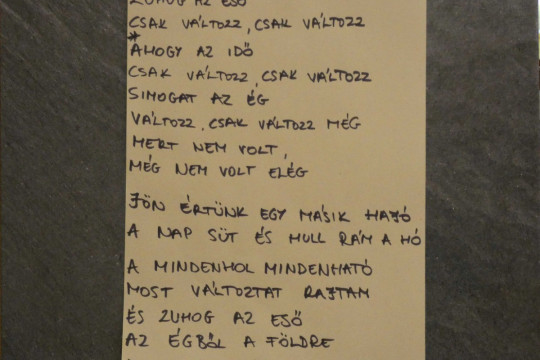 ZUHOG AZ ESŐ
CSAK VÁLTOZZ, CSAK VÁLTOZZ
*
AHOGY AZ IDŐ
CSAK VÁLTOZZ, CSAK VÁLTOZZ
SIMOGAT AZ ÉG
VÁLTOZZ, CSAK VÁLTOZZ MÉG
MERT NEM VOLT,
MÉG NEM VOLT ELÉG
JÖN ÉRTÜNK EGY MÁSIK HAJÓ
A NAP SÜT ÉS HULL RÁM A HÓ
A MINDENHOL MINDENHATÓ
MOST VÁLTOZTAT RAJTAM
ÉS ZUHOG AZ ESŐ
AZ ÉGBŐL A FÖLDRE